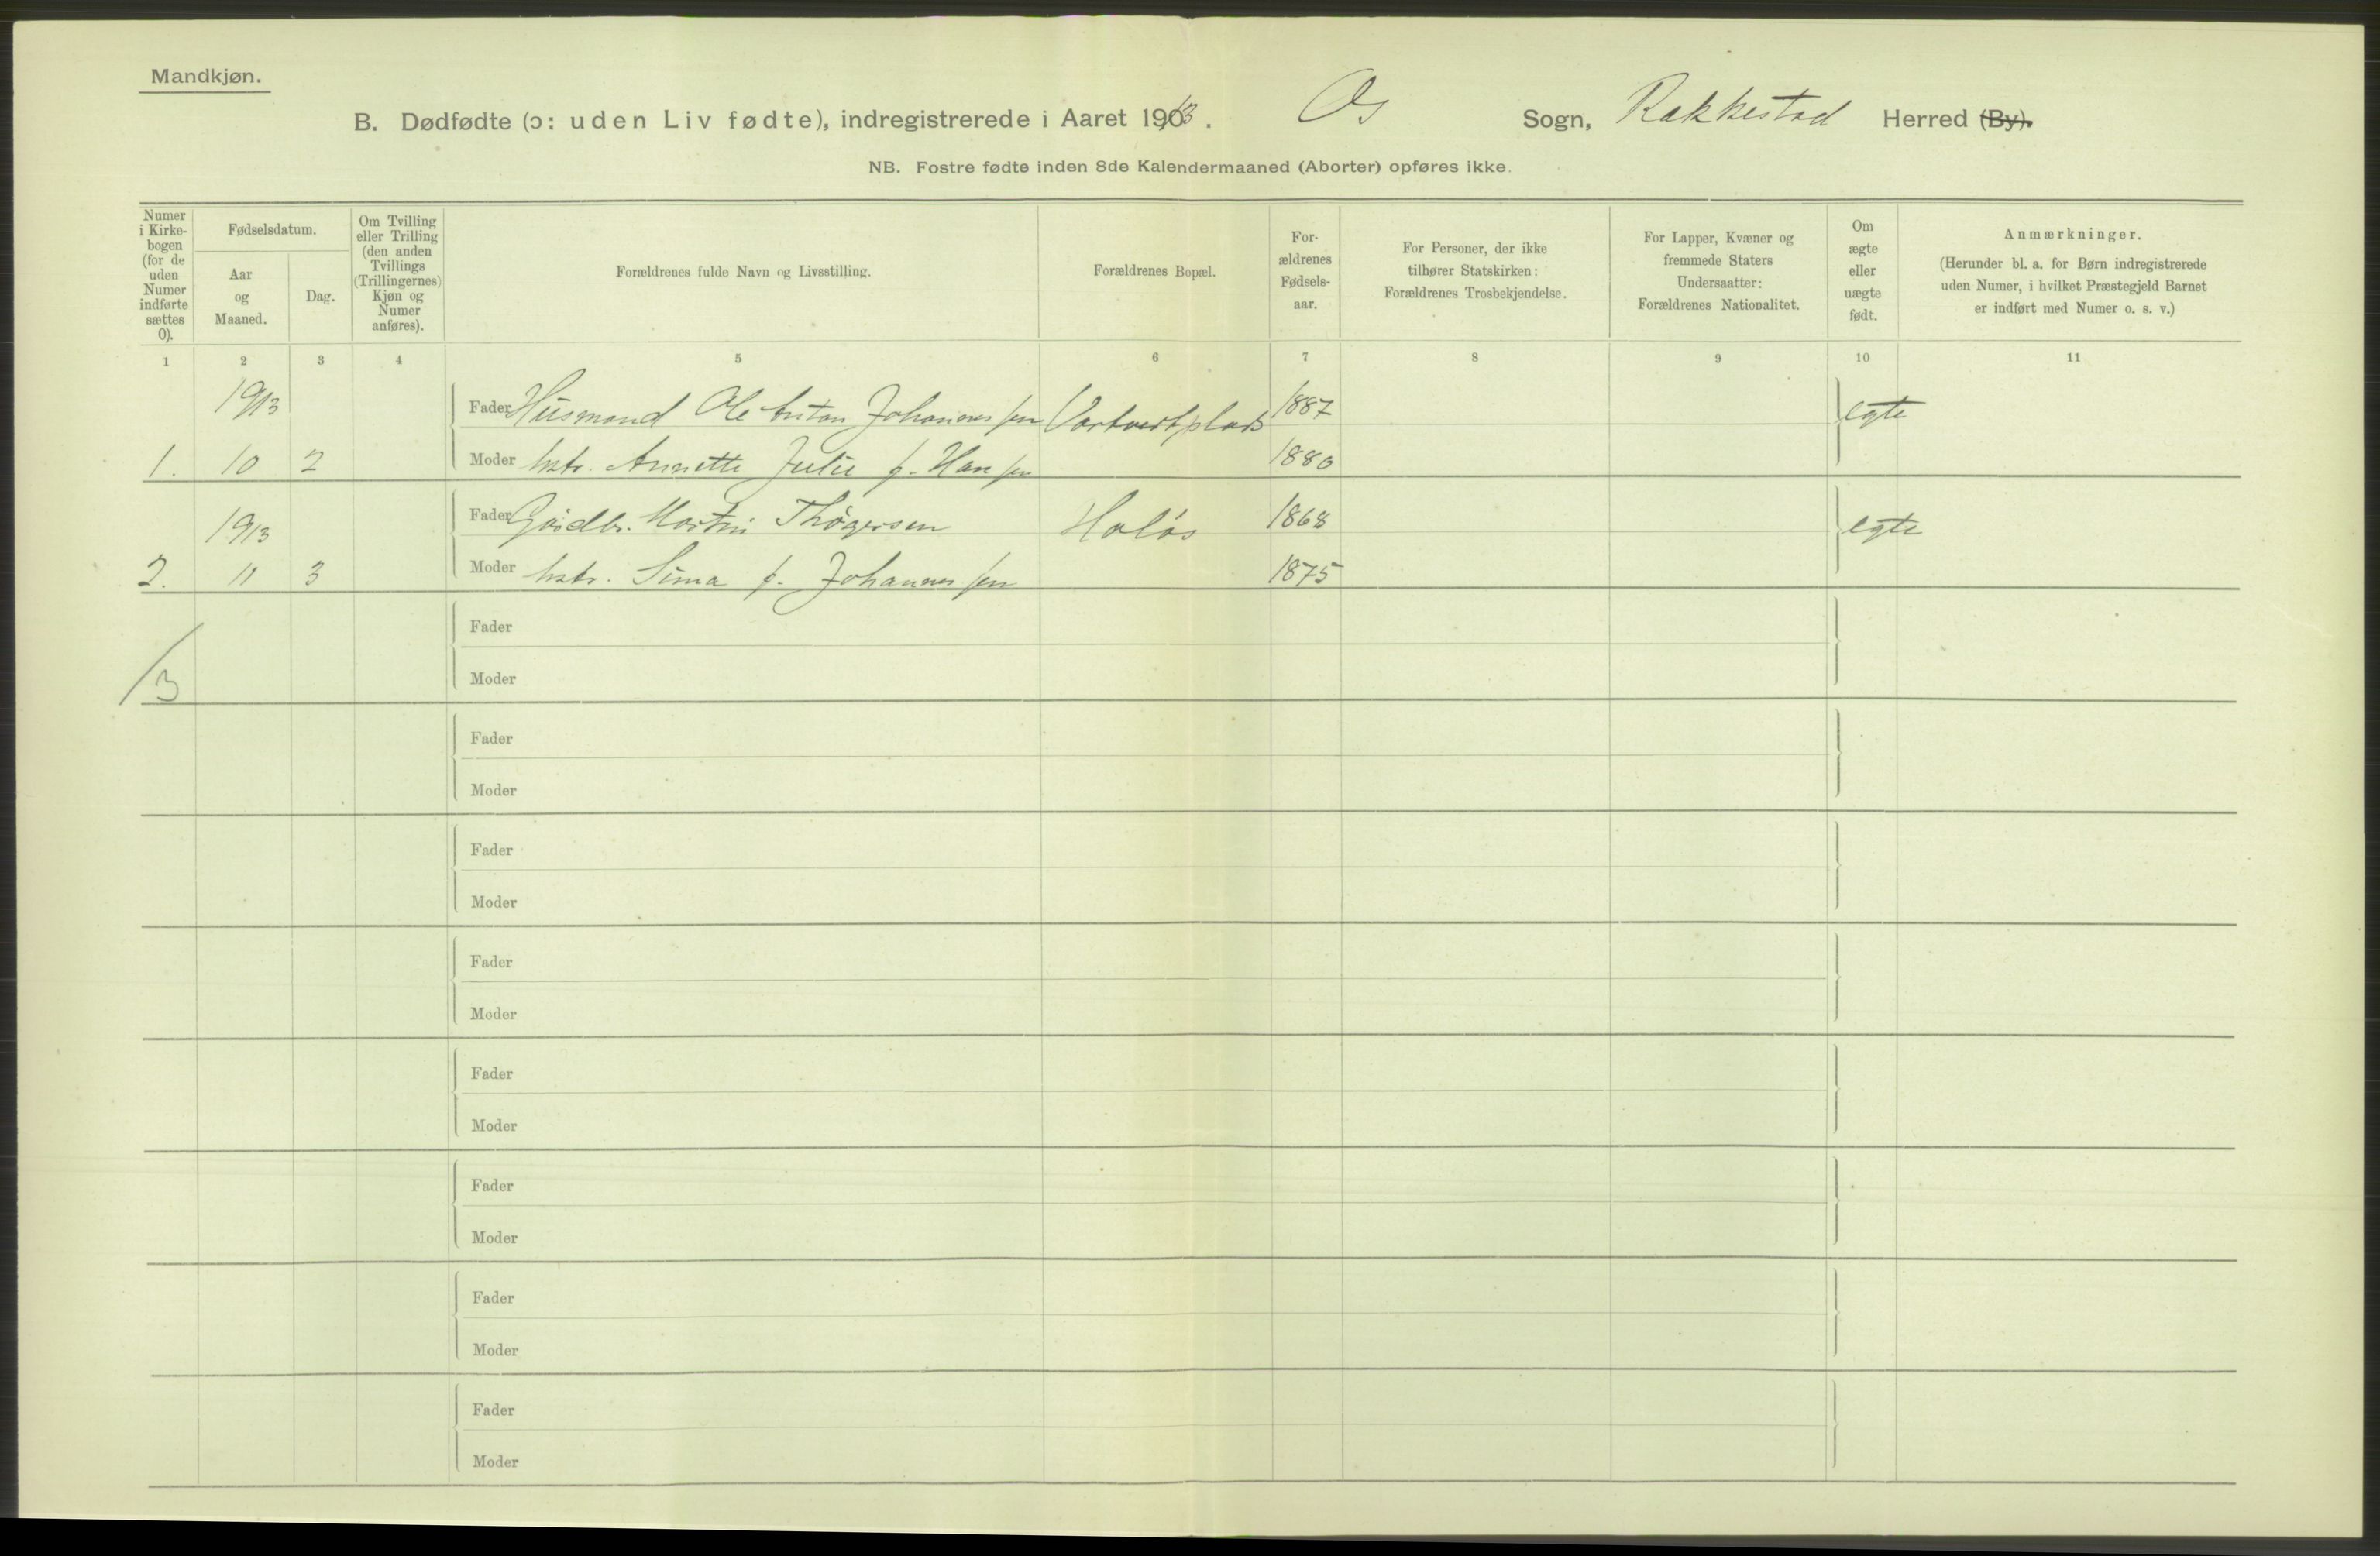 Mandkjøn.
B. Dødfødte (ɔ: uden Liv fødte), indregistrerede i Aaret 1913. Os Sogn, Rakkestad Herred (By).
NB. Fostre fødte inden 8de Kalendermaaned (Aborter) opføres ikke.
Numer
i Kirke-
bogen
(for de
uden
Numer
indførte
sættes
0).
Fødselsdatum.
Aar
og
Maaned.
Dag.
Om Tvilling
eller Trilling
(den anden
Tvillings
(Trillingernes)
Kjøn og
Numer
anføres).
Forældrenes fulde Navn og Livsstilling.
Forældrenes Bopæl.
For-
ældrenes
Fødsels-
aar.
For Personer, der ikke
tilhører Statskirken:
Forældrenes Trosbekjendelse.
For Lapper, Kvæner og
fremmede Staters
Undersaatter:
Forældrenes Nationalitet.
Om
ægte
eller
uægte
født.
Anmærkninger.
(Herunder bl. a. for Børn indregistrerede
uden Numer, i hvilket Præstegjeld Barnet
er indført med Numer o. s. v.)
1 2 3 4 5 6 7 8 9 10 11
1913 Fader Husmand Ole Anton Johannessen 1887 egte
1. 10 2 Moder hstr. Annette Julie f. Hansen 1880
1913 Fader Gårdbr. Martin Thøgersen Holøs 1868 egte
2. 11 3 Moder hstr. Sima f. Johannessen 1875
Fader
/3 Moder
Fader
Moder
Fader
Moder
Fader
Moder
Fader
Moder
Fader
Moder
Fader
Moder
Fader
Moder